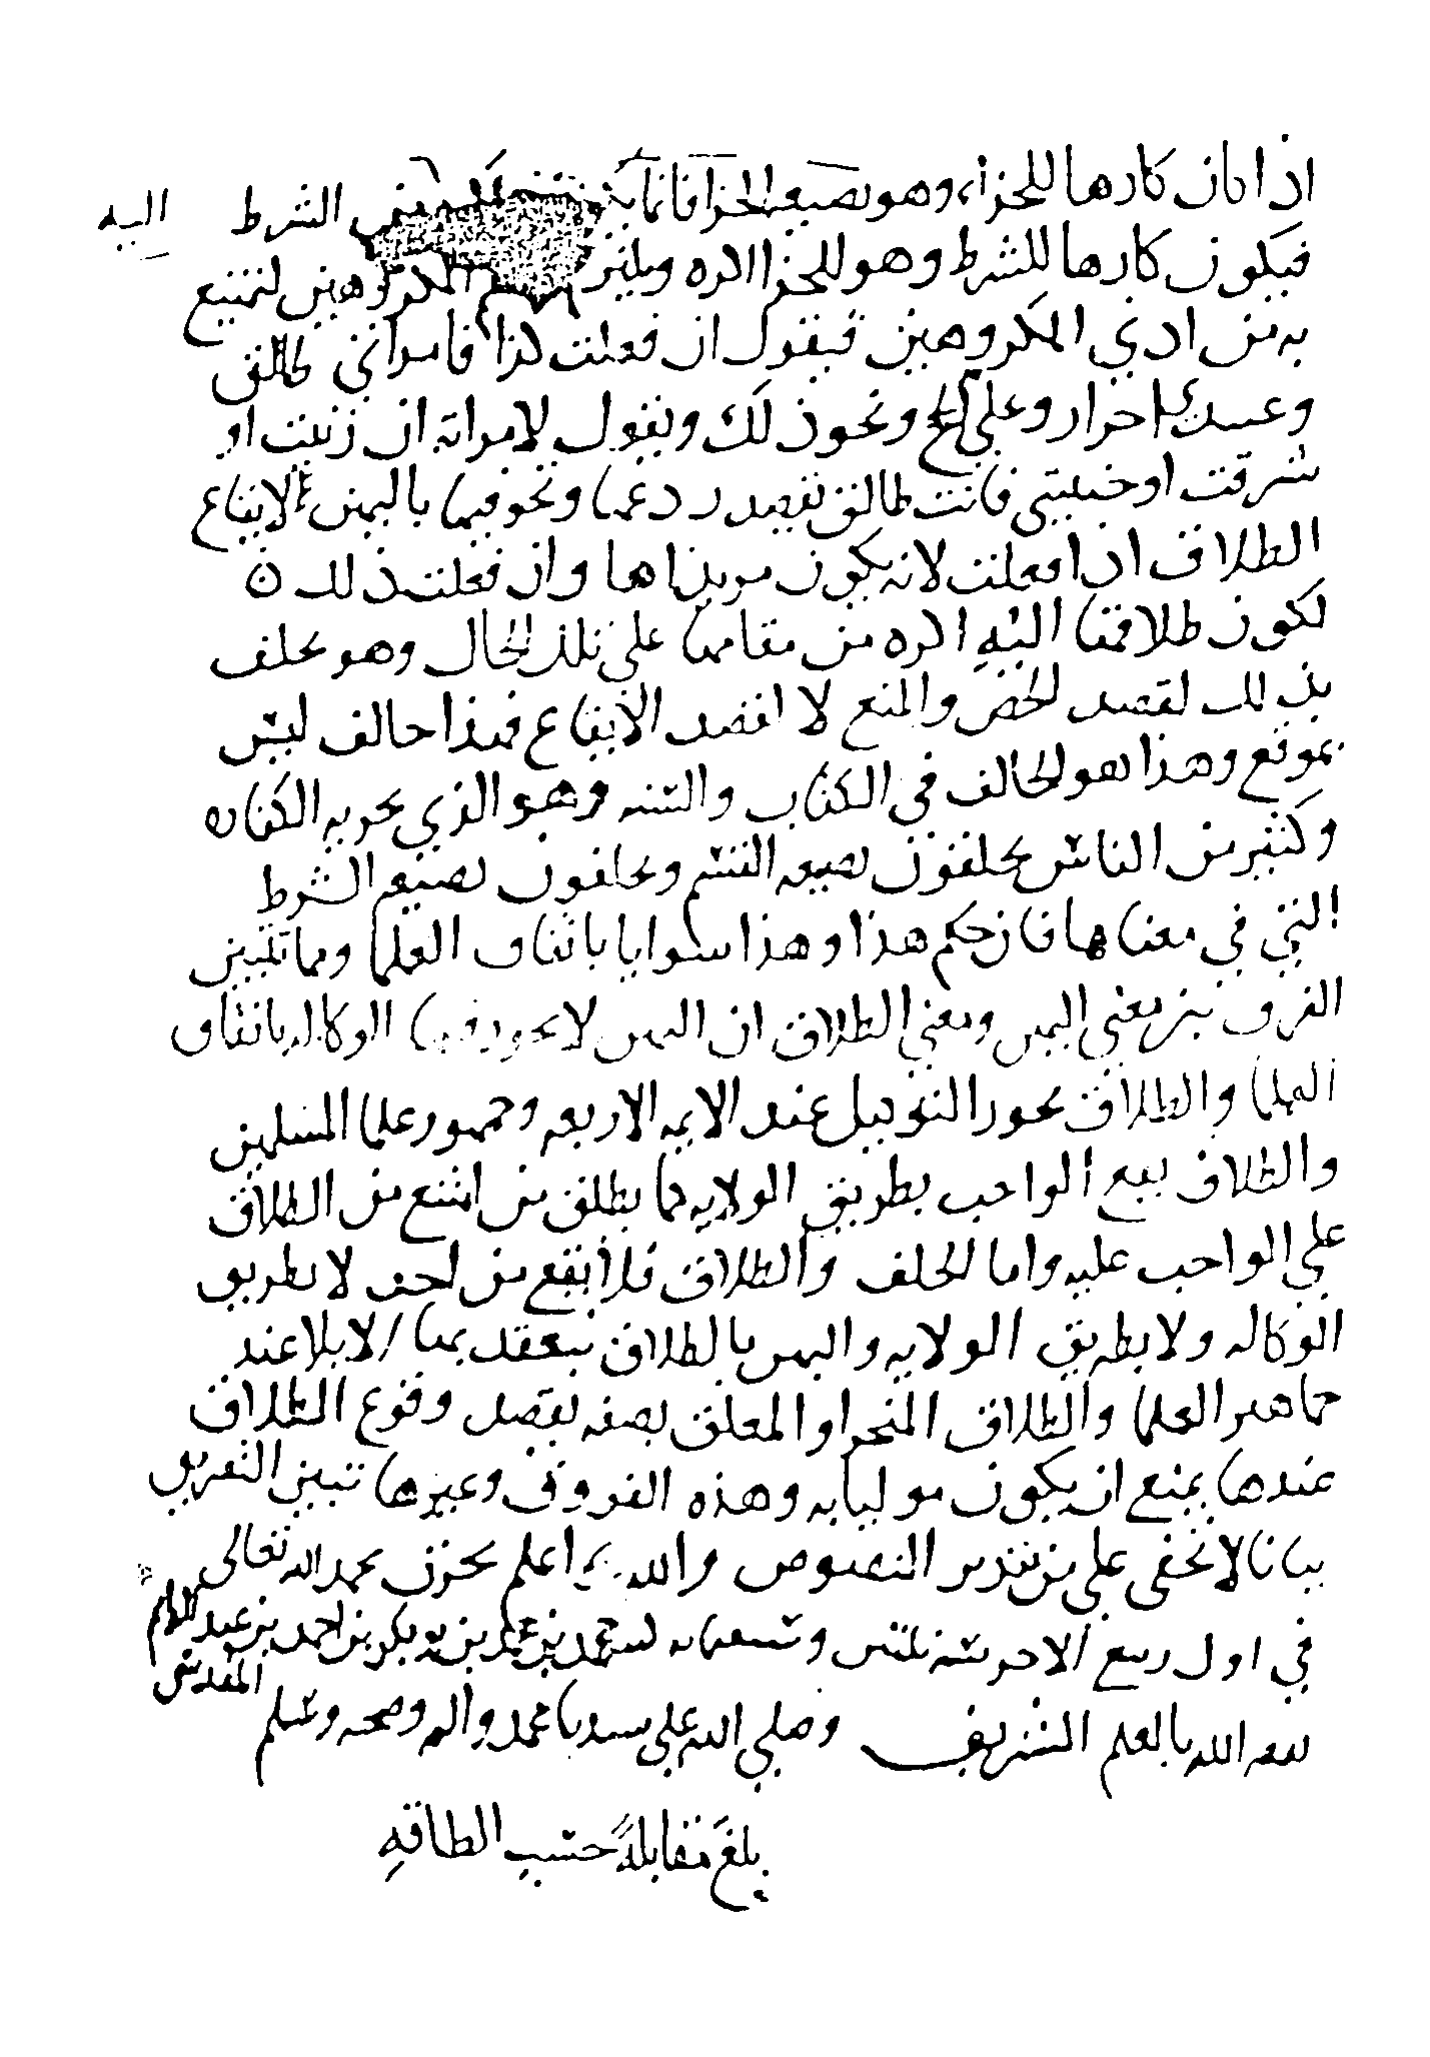 اذا كان كارها للجزاء وهو بصيغه الجزا فانما الشرط اليه
فيكون كارها للشرط وهو للجزا اكره المكروهين ليمتنع
به من ادني المكروهين فيقول ان فعلت كذا فامراتي طالق
وعبيدي احرار وعلي الحج ونحو ذلك ويقول لامراته ان زنيت او
سرقت او خنتيني فانت طالق يقصد ردعها وتخوفيها باليمين لا ايقاع
الطلاق اذا فعلت لانه يكون مريدا لها وان فعلت ذلك
لكون طلاقها اليه اكره من مقامها علي تلك الحال وهو يحلف
بذلك لقصد الحض والمنع لا لقصد الايقاع فهذا حالف ليس
بموقع وهذا هو الحالف في الكتاب والسنه وهو الذي يجزيه الكفاره
وكثير من الناس يحلفون بصيغه القسم ويحلفون بصيغه الشرط
التي في معناها فان حكم هذا وهذا سوا باتفاق العلما ومما يبين
الفرق بين معني اليمين ومعني الطلاق ان اليمين لا يجوز فيها الوكاله باتفاق
العلما والطلاق يجوز التوكيل عند الايمه الاربعه وجمهور علما المسلمين
والطلاق يقع الواجب بطريق الولايه كما يطلق من امتنع من الطلاق
علي الواجب عليه واما الحلف والطلاق فلا يقع من احد لا بطريق
الوكاله ولا بطريق الولايه واليمين بالطلاق ينعقد بها الايلا عند
جماهير العلما والطلاق المنجز او المعلق بصفه يقصد وقوع الطلاق
عندها يمنع ان يكون موليا به وهذه الفروق وغيرها تبين التفريق
بيانا لا يخفي علي من تدبر النصوص والله اعلم بحمد الله تعالى
في اول ربيع الاخر سنه وتسعمايه احمد بن محمد بن ابي بكر بن احمد بن عبد
المقدسي
نفعه الله بالعلم الشريف وصلي الله علي سيدنا محمد واله وصحبه وسلم
بلغ مقابلةً حسب الطاقهِ